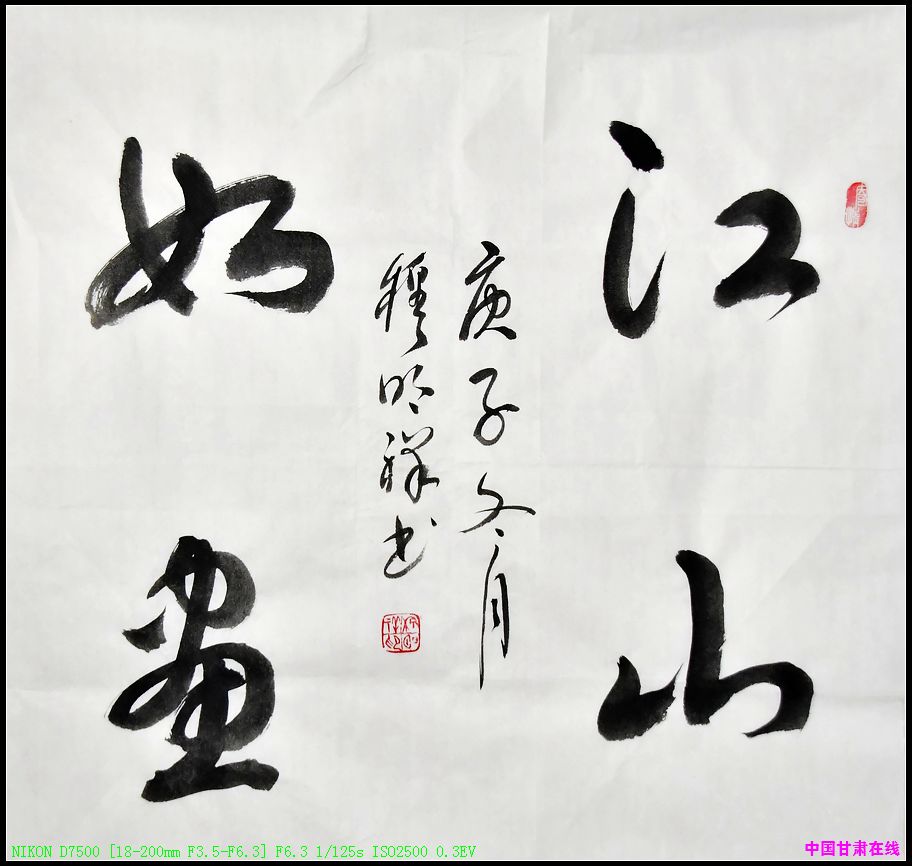 江山
如画
庚子冬月
程明祥书
NIKON D7500 [18-200mm F3.5-F6.3] F6.3 1/125s ISO2500 0.3EV
中国甘肃在线